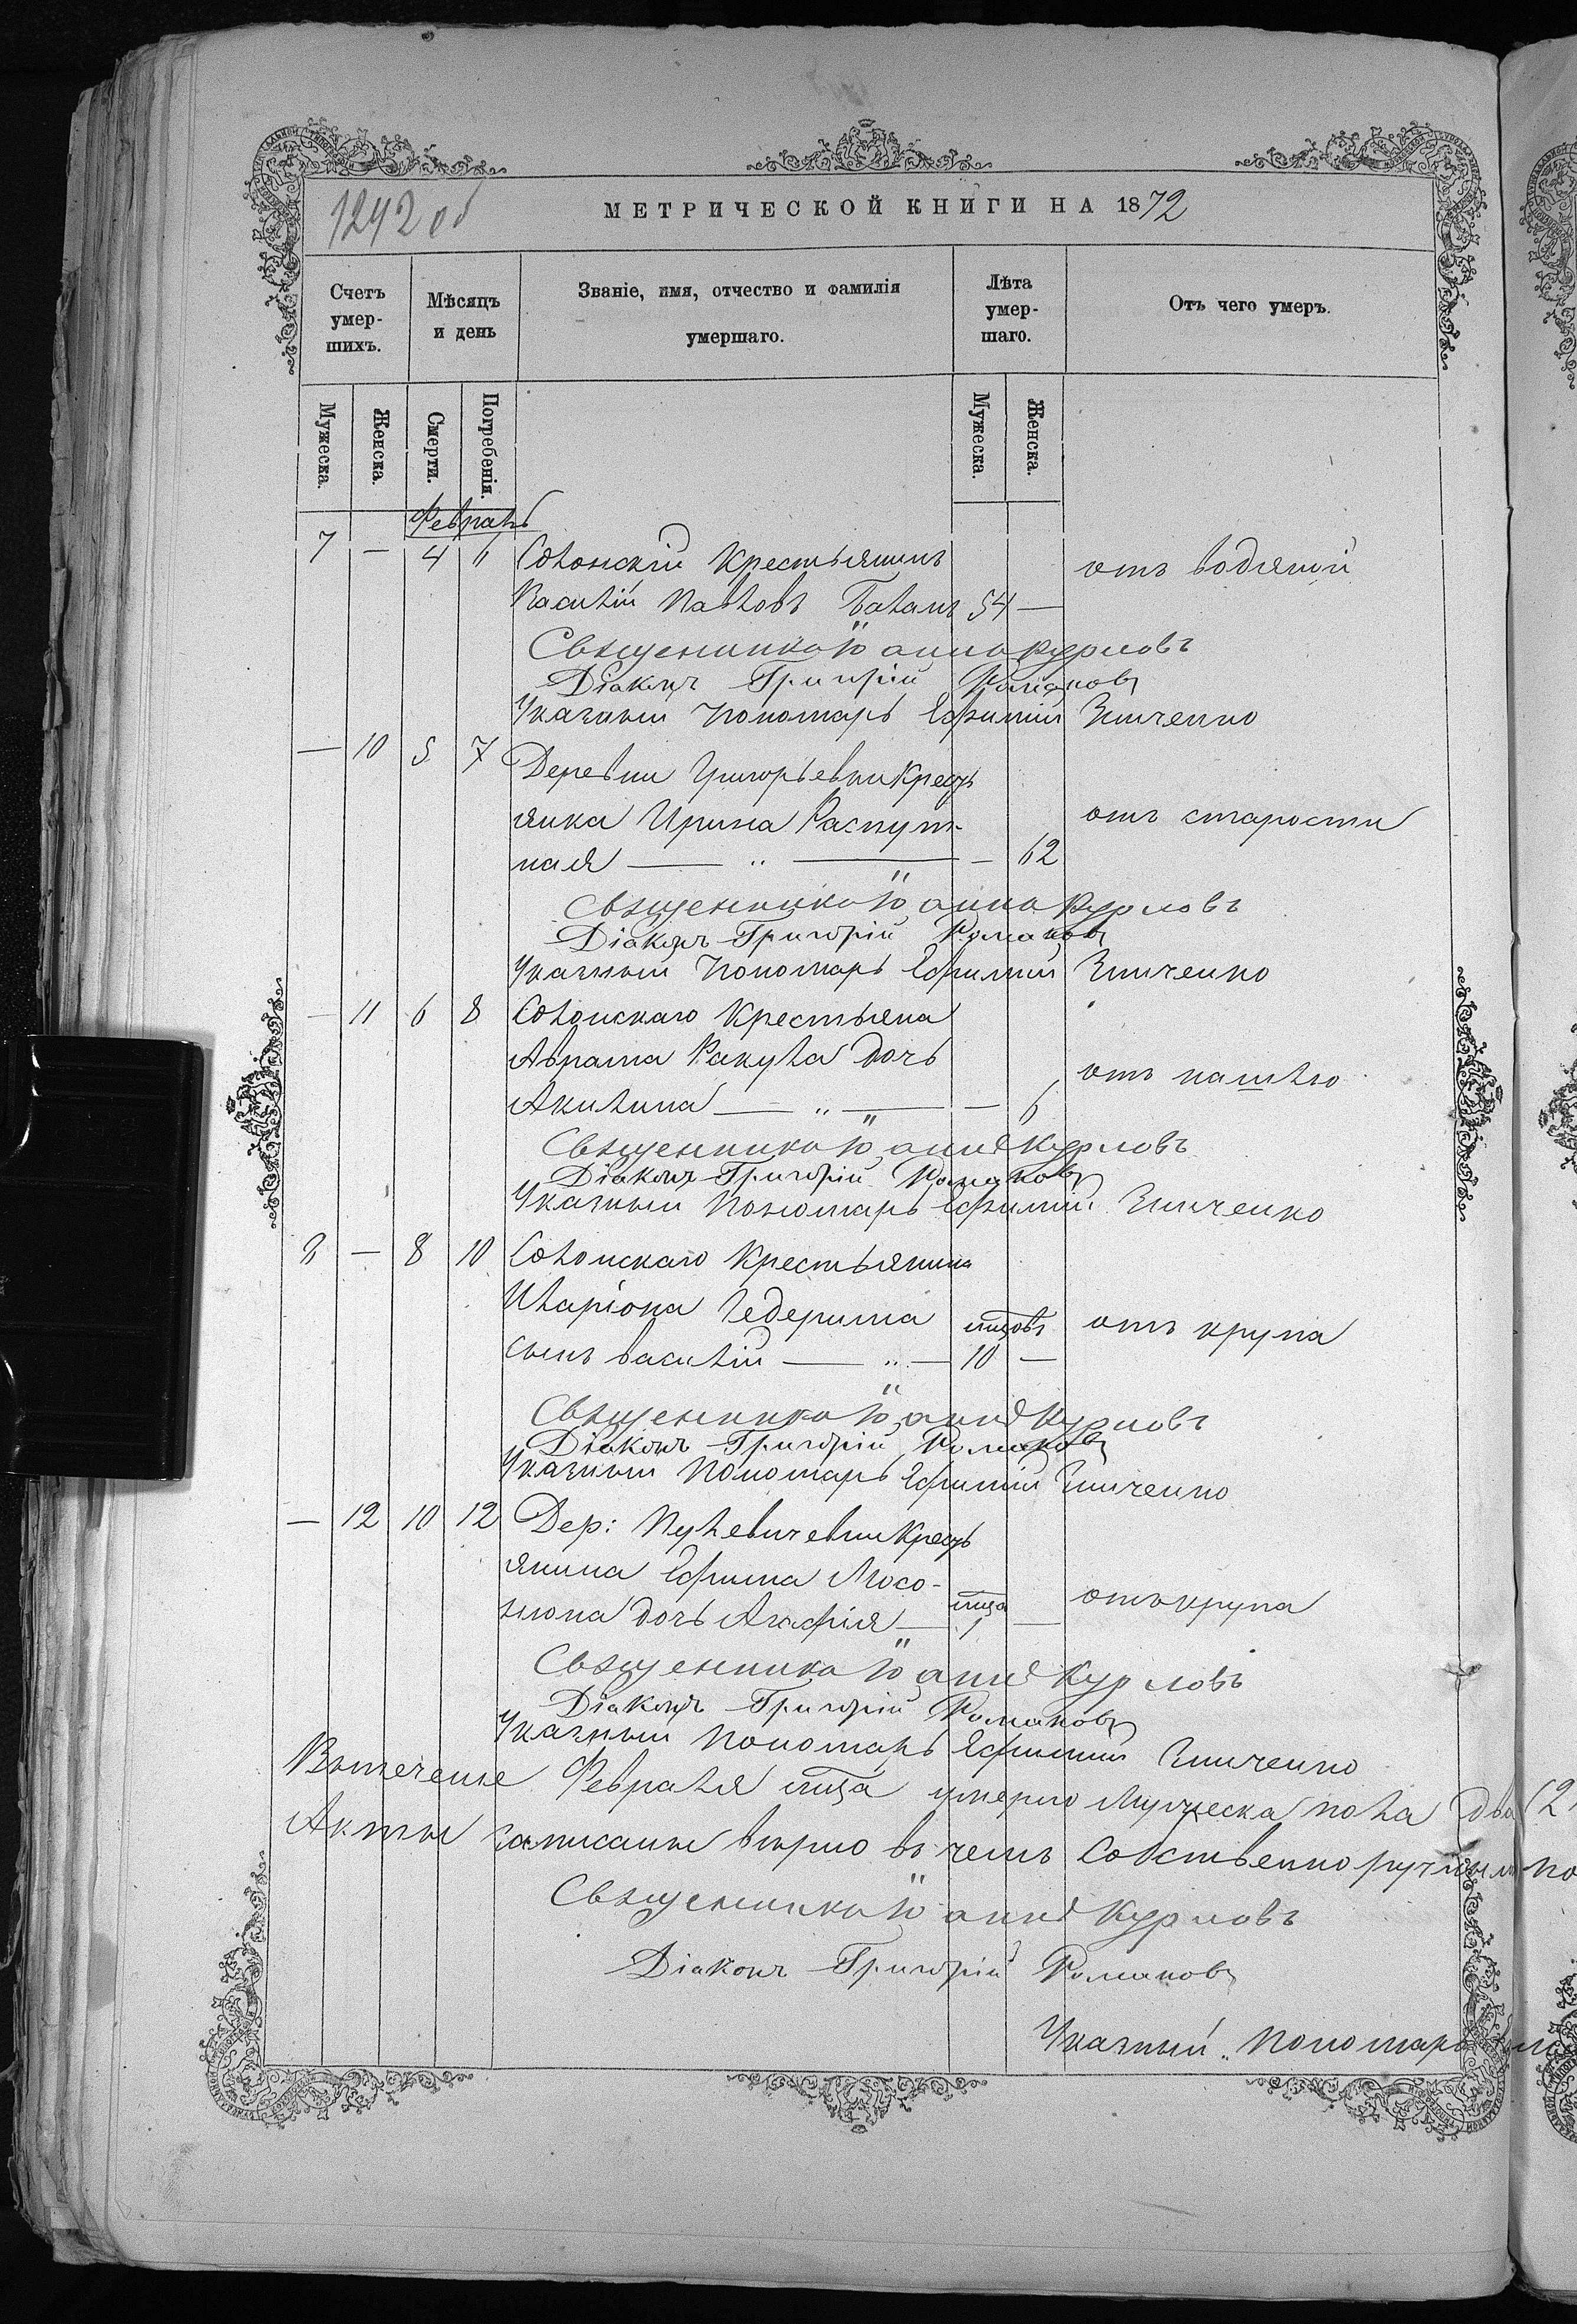 1242 об
МЕТРИЧЕСКОЙ КНИГИ НА 1872
Счетъ умер-шихъ.
Мѣсяцъ и день
Званіе, имя, отчество и фамилія умершаго.
Лѣта умер-шаго.
Отъ чего умеръ.
Мужеска.
Женска.
Смерти.
Погребенія.
Мужеска.
Женска.
Февраль
7 — 4 6 СоLонскій Крестьянинъ
Василій Павловъ Баланъ 54 — отъ водяной
Священникъ Іоаннъ Курловъ
Діаконъ Григорій Романовъ
Указный Пономарь Ефимій Зинченко
— 10 5 7 Деревни Григорьевки Крест
янка Ирина Распут- отъ старости
ная — „ — — 62
Священникъ Іоаннъ Курловъ
Діаконъ Григорій Романовъ
Указный Пономарь Ефимій Зинченко
— 11 6 8 Крестьяна
Аврама Ракула дочь отъ кашлю
Акилина — „ — — 6
Священникъ Іоаннъ Курловъ
Діаконъ Григорій Романовъ
Указный Пономарь Ефимій Зинченко
8 — 8 10 Крестьянина
Иларіона Чедерима мцовъ отъ крупа
сынъ Василій — „ — 10 —
Священникъ Іоаннъ Курловъ
Діаконъ Григорій Романовъ
Указный Пономарь Ефимій Зинченко
— 12 10 12 Дер: Крест
янина Ефима Мосо-
дочь Агафія — мца 1 — отъ крупа
Священникъ Іоаннъ Курловъ
Діаконъ Григорій Романовъ
Указный Пономарь Ефимій Зинченко
Въ теченіе Февраля мца умерло Мужеска пола два (2
Акты записаны вѣрно въ чемъ Собственноручнымъ по
Священникъ Іоаннъ Курловъ
Діаконъ Григорій Романовъ
Указный Пономарь